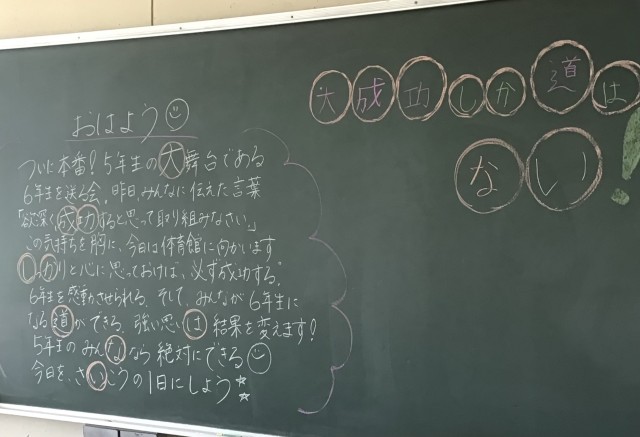 おはよう
ついに本番！5年生の大舞台である
6年生を送る会。昨日、みんなに伝えた言葉
「欲深く成功すると思って取り組みなさい。」
この気持ちを胸に、今日は体育館に向かいます
しっかりと心に思っておけば、必ず成功する。
6年生を感動させられる。そして、みんなが6年生に
なる道ができる。強い思いは結果を変えます！
5年生のみんななら絶対にできる
今日を、さいこうの1日にしよう
大成功しか道は
ない！